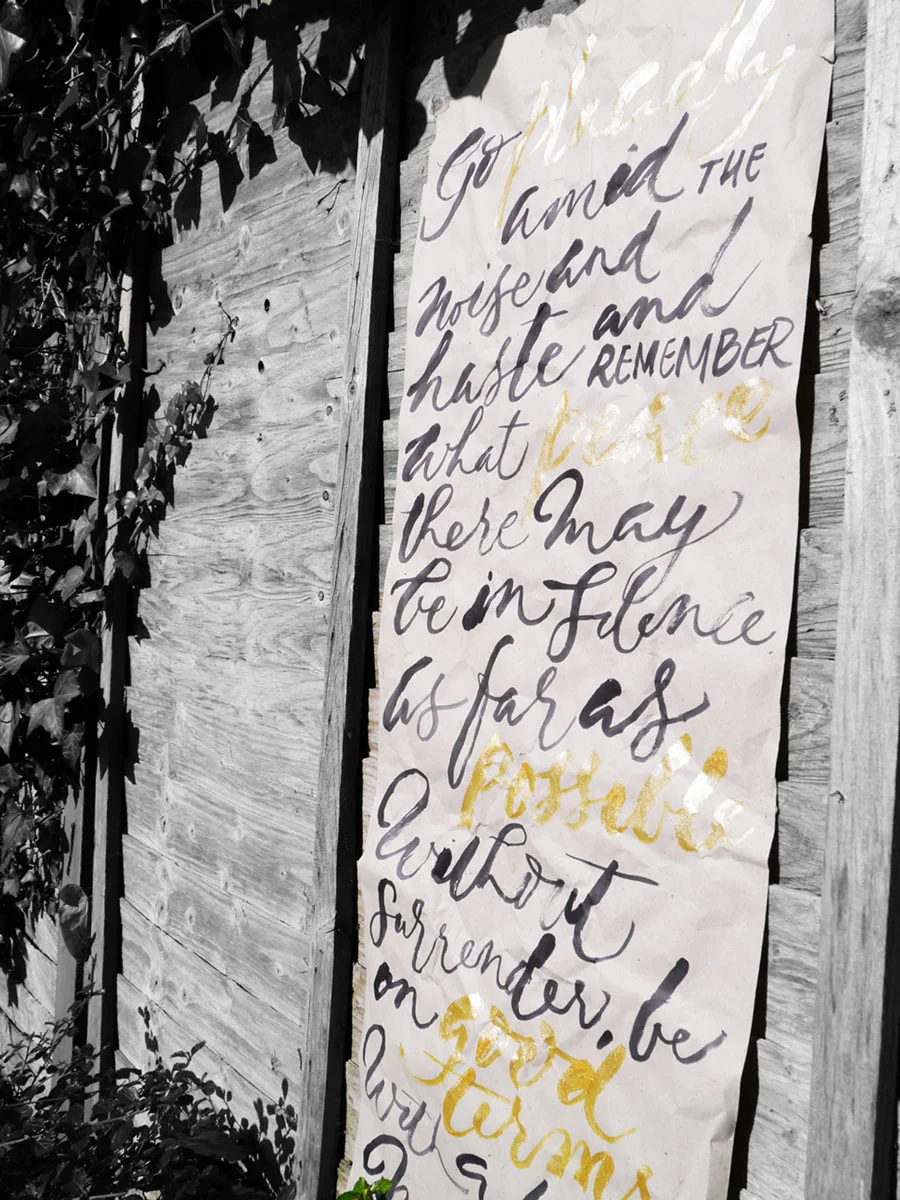 Go placidly
amid THE
noise and
haste and
REMEMBER
what peace
there may
be in silence
as far as
possible
Without
surrender, be
on good
terms